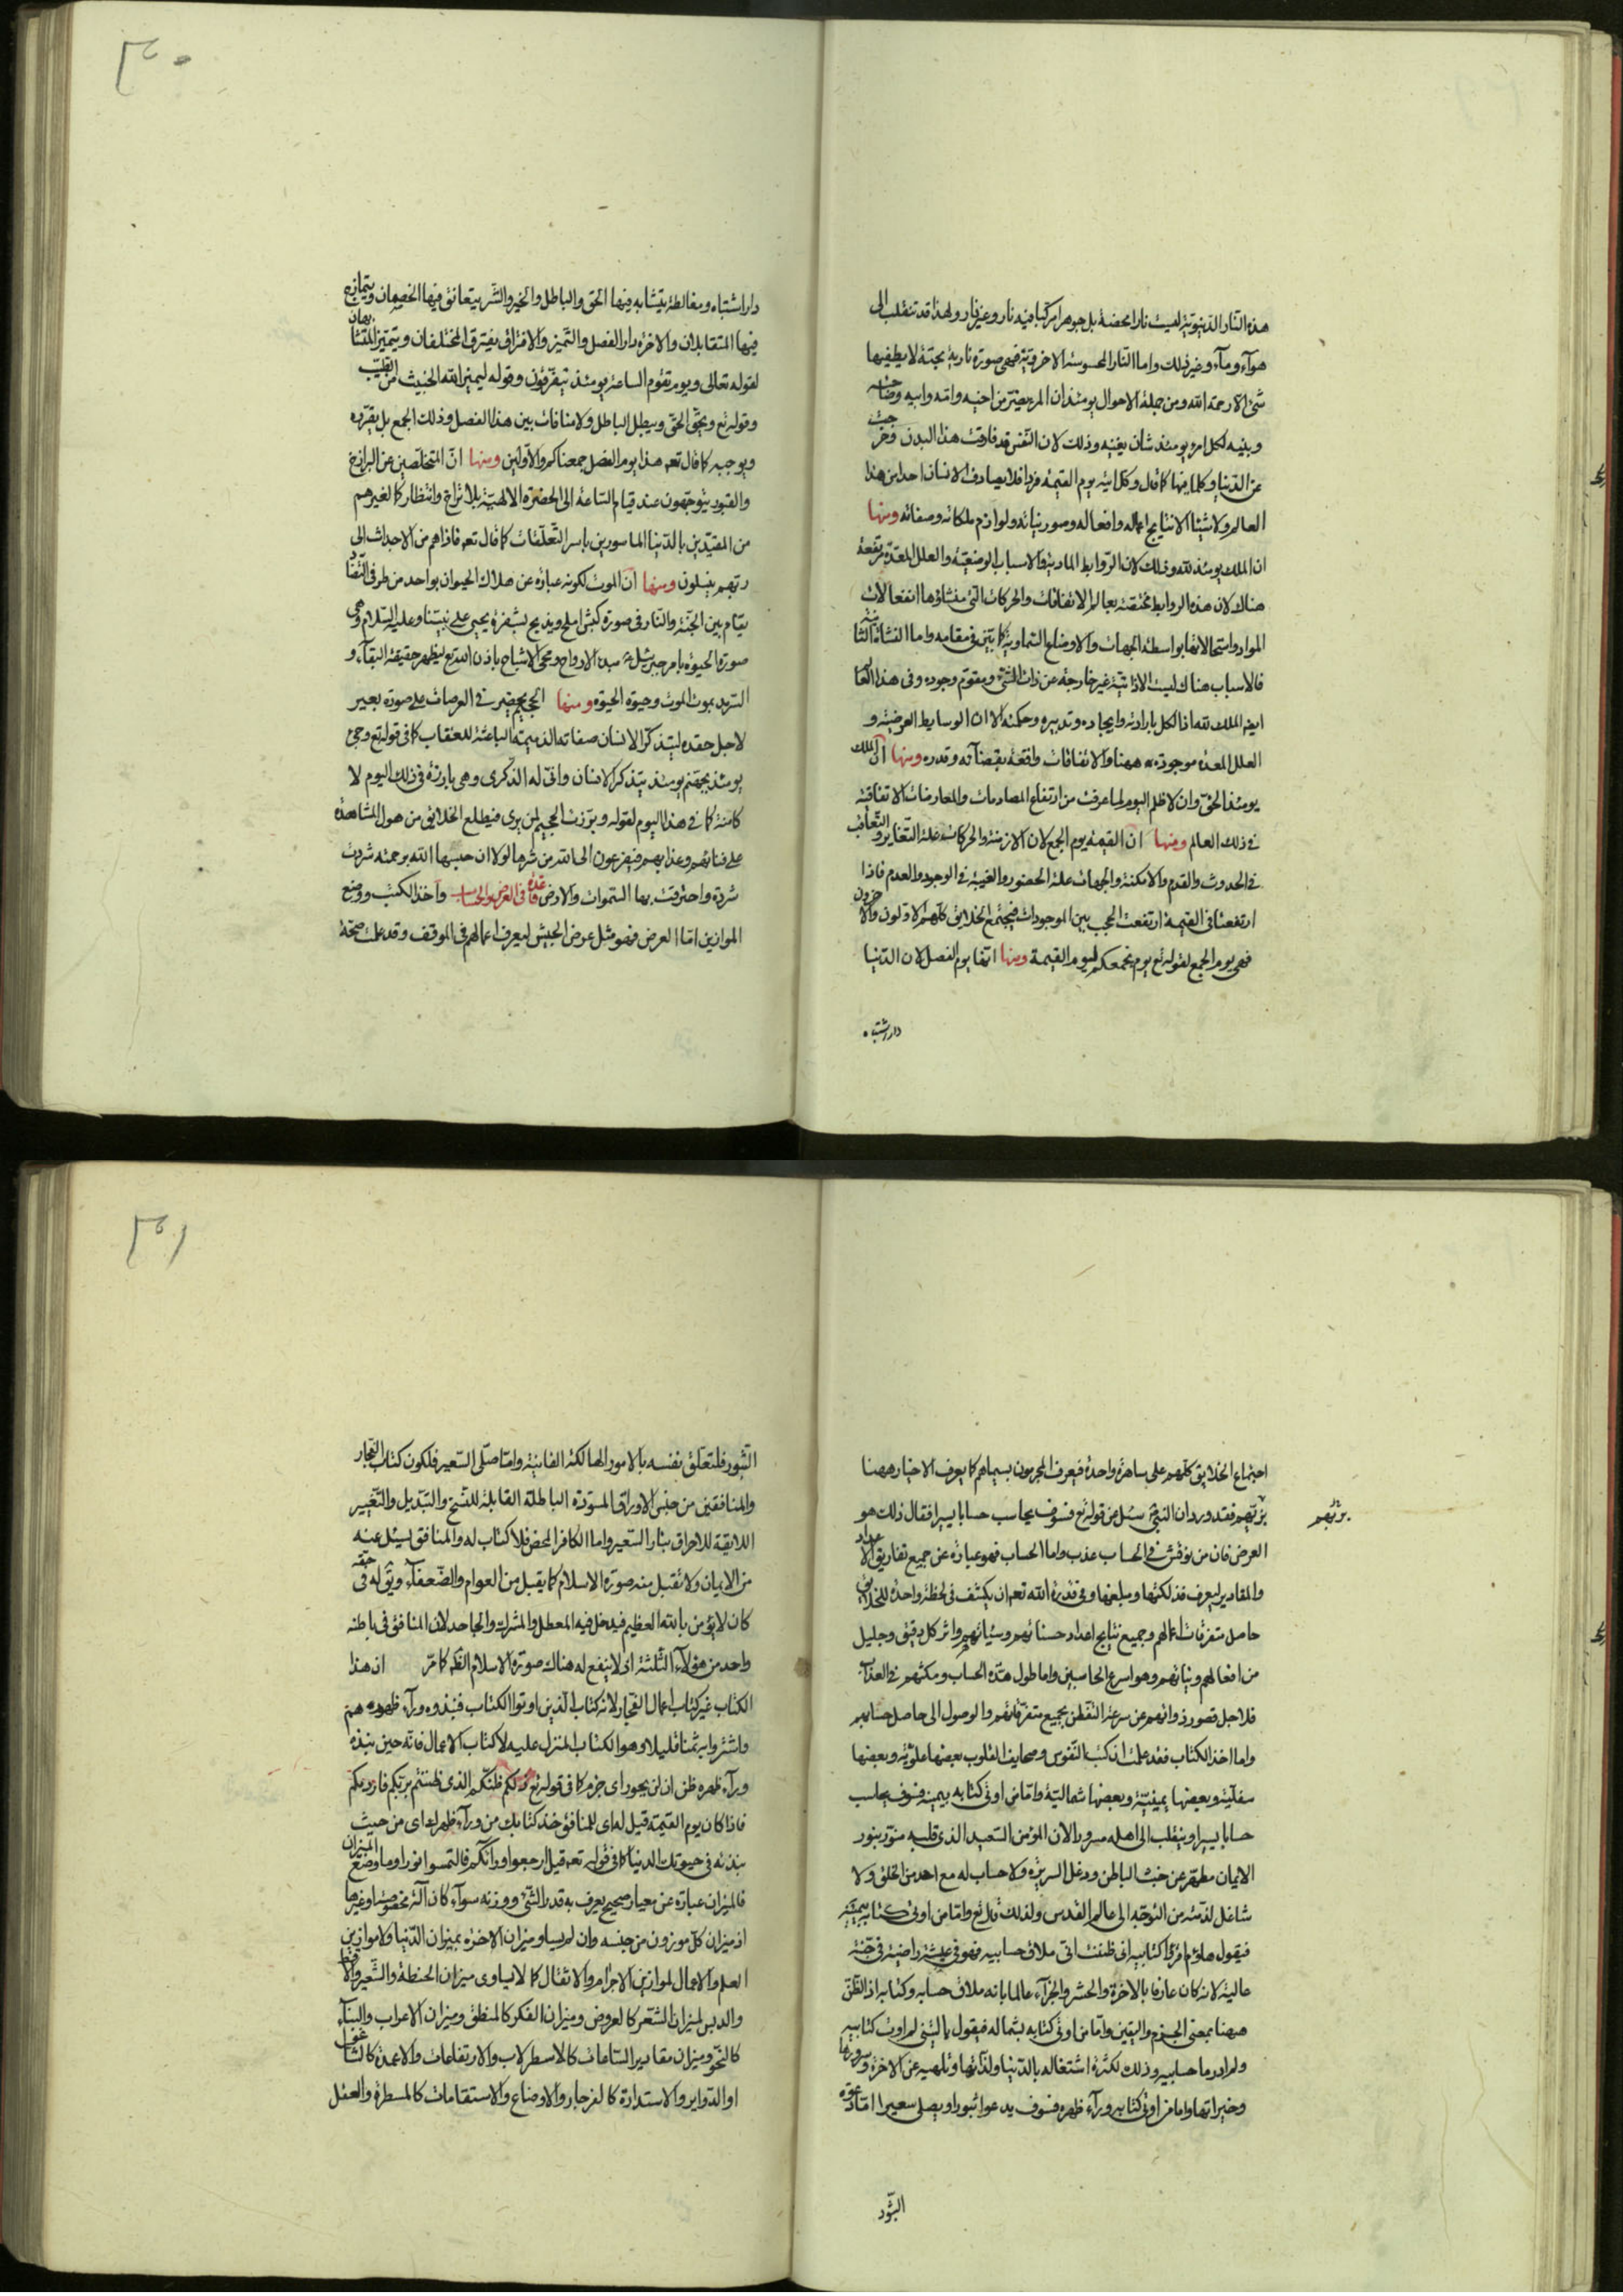 هذه النار الدنيوية ليست نارا محضة بل جوهرا مركبا فيه نار وغير نار ولهذا قد تنقلب الى
هوآء ومآء وغير ذلك واما النار المحسوسة الاخروية فهى صورة نارية بحتة لا يطفيها
شئ الا رحمة الله ومن جملة الاحوال يومئذ ان المرء يفر من اخيه وامه وابيه وصاحبته
وبنيه لكل امرء يومئذ شان يغنيه وذلك لان النفس قد فارقت هذا البدن وخرجت
عن الدنيا وكلما فيها كما قال وكل اتيه يوم القيمة فردا فلا يصادف الانسان احدا من هذا
العالم ولا شيئا الا نتايج اعماله وافعاله وصور نياته ولوازم ملكاته وصفاته ومنها
ان الملك يومئذ لله وذلك لان الروابط المادية والاسباب الوضعية والعلل المعدة مرتفعة
هناك لان هذه الروابط مختصة بعالم الاتفاقات والحركات التى منشاؤها انفعالات
المواد واستحالاتها بواسطة الجهات والاوضاع السماوية كما تبين فى مقامه واما النشاة الثانية
فالاسباب هناك ليست الا ذاتية غير خارجة عن ذات الشئ ومقوم وجوده وفى هذا العالم
ايضا الملك لله اذا الكل بارادته وايجاده وتدبيره وحكمته الا ان الوسايط العرضية و
العلل المعدة موجودة ههنا والاتفاقات واقعة بقضآئه وقدره ومنها ان الملك
يومئذ الحق وان لا ظلم اليوم لما عرفت من ارتفاع المصادمات والمعارضات الاتفاقية
فى ذلك العالم ومنها ان القيمة يوم الجمع لان الازمنة والحركات علة التغاير والتعاقب
فى الحدوث والقدم والامكنة والجهات علة الحضور والغيبة فى الوجود والعدم فاذا
ارتفعتا فى القيمة ارتفعت الحجب بين الموجودات فيجتمع الخلايق كلهم الاولون والاخرون
فهى يوم الجمع لقوله تع يوم يجمعكم ليوم القيمة ومنها انها يوم الفصل لان الدنيا
دار اشتباه
دار اشتباه ومغالطة يتشابه فيها الحق والباطل والخير والشر يتعانق فيها الخصمان ويتمازج
فيها المتقابلان والاخرة دار الفصل والتميز والافتراق يفترق المختلفان ويتميز المتشابهان
لقوله تعالى ويوم تقوم الساعة يومئذ يتفرقون وقوله ليميز الله الخبيث من الطيب
وقوله تع ويحق الحق ويبطل الباطل ولا منافات بين هذا الفصل وذلك الجمع بل يقرره
ويوجبه كما قال تعه هذا يوم الفصل جمعناكم والاولين ومنها ان المتخلصين عن البرازخ
والقبور يتوجهون عند قيام الساعة الى الحضرة الالهية بلا تراخ وانتظار كما لغيرهم
من المقيدين بالدنيا الماسورين باسر التعلقات كما قال تعه فاذا هم من الاجداث الى
ربهم ينسلون ومنها ان الموت لكونه عبارة عن هلاك الحيوان بواحد من طرفى التضاد
يقام بين الجنة والنار فى صورة كبش املح ويذبح بشفرة يحيى على نبينا وعليه السلام وهى
صورة الحيوة بامر جبرئيل مبدء الارواح ومحيى الاشباح باذن الله تع ليظهر حقيقة البقآء و
السرمد بموت الموت وحيوة الحيوة ومنها الجحيم يحضر فى العرصات على صورة بعير
لاجل حقده ليتذكر الانسان صفاته الذميمة الباعثة للعقاب كما فى قوله تع وجئ
يومئذ بجهنم يومئذ يتذكر الانسان وانى له الذكرى وهى بارزة فى ذلك اليوم لا
كامنة كما فى هذا اليوم لقوله وبرزت الجحيم لمن يرى فيطلع الخلايق من هول المشاهدة
على فنائهم وعذابهم فيفزعون الى الله من شرها لولا ان حبسها الله برحمته شردت
شردة واحترقت بها السموات والارض قاعدة فى العرض والحساب واخذ الكتب ووضع
الموازين اما العرض فهو مثل عرض الجيش ليعرف اعمالهم فى الموقف وقد علمت صحة
٣٠٠
اجتماع الخلايق كلهم على ساهرة واحدة فيعرف المجرمون بسيماهم كما يعرف الاخيار ههنا
بزيهم فقد ورد ان النبى سئل عن قوله تع فسوف يحاسب حسابا يسيرا فقال ذلك هو
بزيهم
العرض فان من نوقش فى الحساب عذب واما الحساب فهو عبارة عن جمع تفاريق الاعداد
والمقادير ليعرف فذلكتها ومبلغها وفى قدرة الله تعه ان يكشف فى لحظة واحدة للخلايق
حاصل متفرقات اعمالهم وجميع نتايج اعداد حسناتهم وسيئاتهم واثر كل دقيق وجليل
من افعالهم ونياتهم وهو اسرع الحاسبين واما طول مدة الحساب ومكثهم فى العذاب
فلاجل قصور ذواتهم عن سرعة التفطن بجميع متفرقاتهم والوصول الى حاصل حسابهم
واما اخذ الكتاب فقد علمت ان كتب النفوس وصحايف القلوب بعضها علوية وبعضها
سفلية وبعضها يمينية وبعضها شمالية واما من اوتى كتابه بيمينه فسوف يحاسب
حسابا يسيرا وينقلب الى اهله مسرورا لان المؤمن السعيد الذى قلبه منور بنور
الايمان مطهر عن خبث الباطن ودغل السريرة ولا حساب له مع احد من الخلق ولا
شاغل لذمته من التوجه الى عالم القدس ولذلك قال تع واما من اوتى كتابه بيمينه
فيقول هاؤم اقرؤا كتابيه انى ظننت انى ملاق حسابيه فهو فى عيشة راضية فى جنة
عالية لانه كان عارفا بالاخرة والحشر والجزآء عالما بانه ملاق حسابه وكتابه اذ الظن
ههنا بمعنى الجزم واليقين واما من اوتى كتابه بشماله فيقول يا ليتنى لم اوت كتابيه
ولم ادر ما حسابيه وذلك لكثرة اشتغاله بالدنيا ولذاتها وتلهيه عن الاخرة وسرورها
وخيراتها واما من اوتى كتابه ورآء ظهره فسوف يدعو ثبورا ويصلى سعيرا اما دعوة
الثبور
الثبور فلتعلق نفسه بالامور الهالكة الفانية واما صلى السعير فلكون كتاب الفجار
والمنافقين من جنس الاوراق المسودة الباطلة القابلة للنسخ والتبديل والتغيير
اللايقة للاحراق بنار السعير واما الكافر المحض فلا كتاب له والمنافق يسئل عنه
من الايمان ولا تقبل منه صورة الاسلام كما يقبل من العوام والضعفآء ويق له فى حقه
كان لا يؤمن بالله العظيم فيدخل فيه المعطل والمشرك والجاحد لان المنافق فى باطنه
واحد من هؤلآء الثلثة اذ لا ينفع له هناك صورة الاسلام الظه كما مر ان هذا
الكتاب غير كتاب اعمال الفجار لانه كتاب الذين اوتوا الكتاب فنبذوه ورآء ظهورهم
واشتروا به ثمنا قليلا وهو الكتاب المنزل عليه لا كتاب الاعمال فانه حين نبذه
ورآء ظهره ظن ان لن يحور اى جزم كما فى قوله تع ذلكم ظنكم الذى ظننتم بربكم فارديكم
فاذا كان يوم القيمة قيل له اى للمنافق خذ كتابك من ورآء ظهرك اى من حيث
نبذته فى حيوتك الدنيا كما فى قوله تعه قيل ارجعوا ورآئكم فالتمسوا نورا وما وضع الميزان
فالميزان عبارة عن معيار صحيح يعرف به قدر الشئ ووزنه سوآء كان آلة مخصوصة او غيرها
اذ ميزان كل موزون من جنسه وان لم يساو ميزان الاخرة بميزان الدنيا ولا موازين
العلم والاعمال لموازين الاجرام والاثقال كما لا يساوى ميزان الحنطة والشعير والاقط
والدبس لميزان الشعر كالعروض وميزان الفكر كالمنطق وميزان الاعراب والبنآء
كالنحو وميزان مقادير الساعات كالاسطرلاب والارتفاعات والاعمدة كالشاغول
او الدواير والاستدارة كالفرجار والاوضاع والاستقامات كالمسطرة والعقل
٣٠١